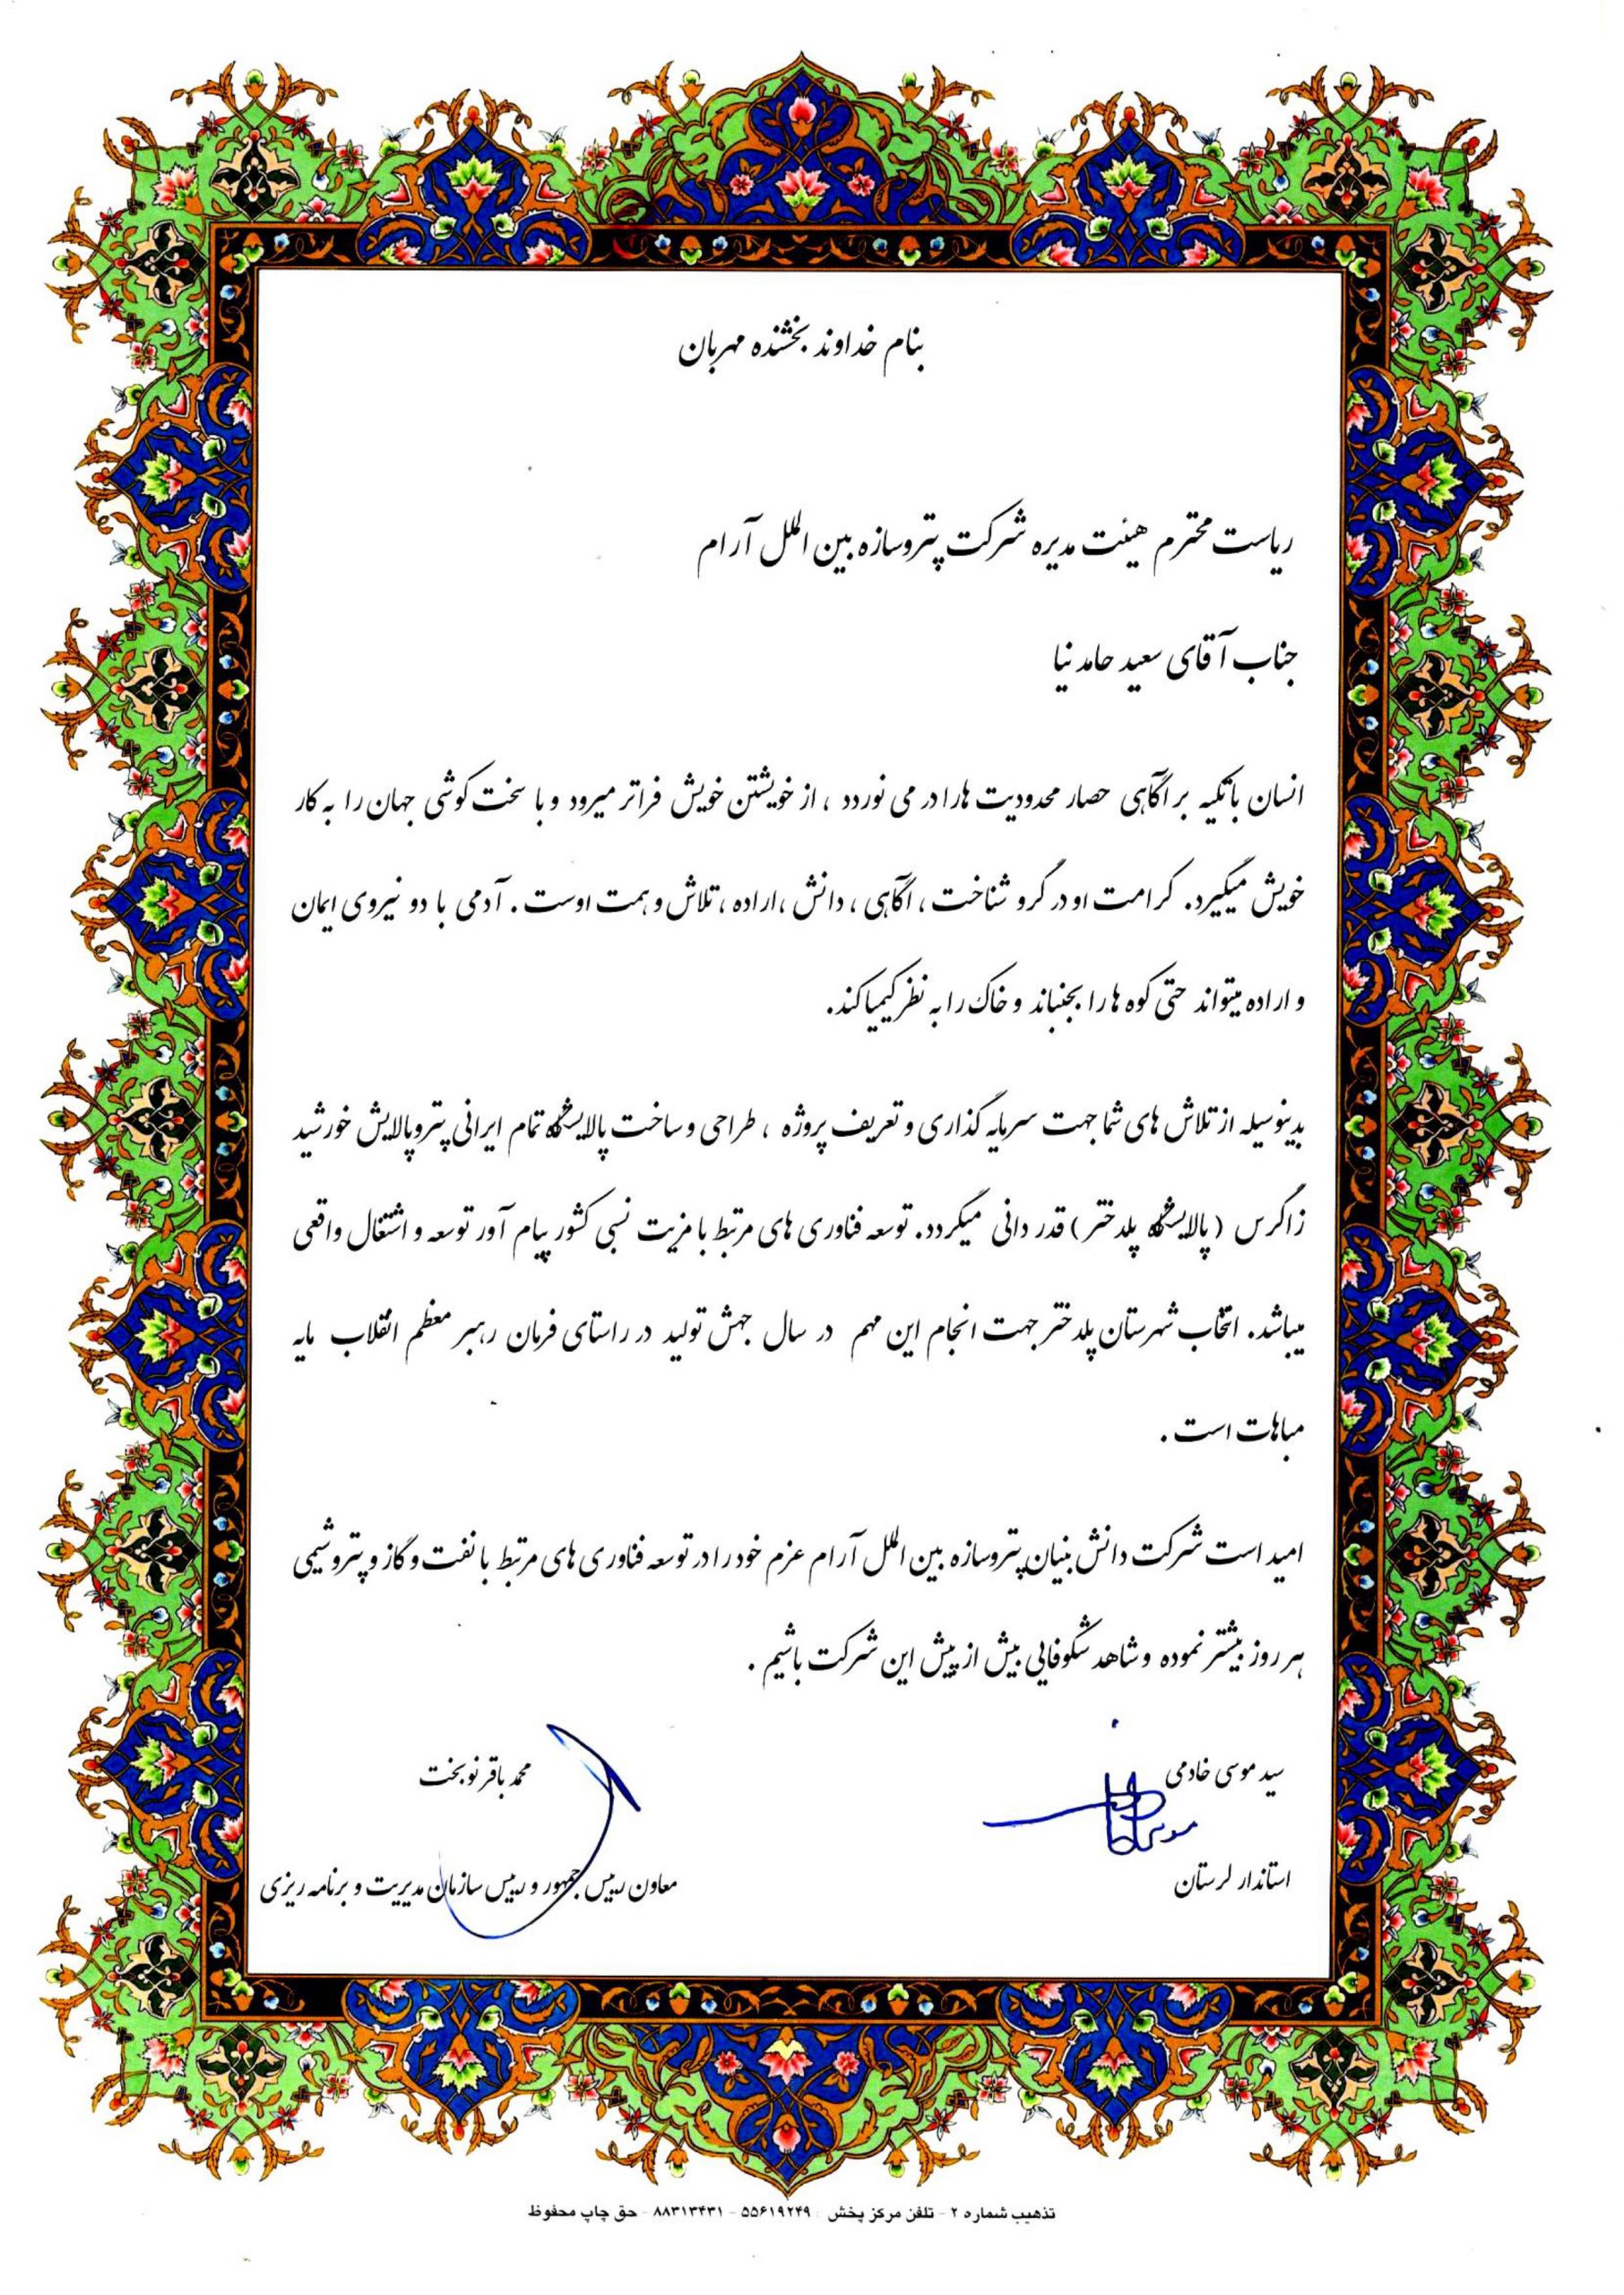 بنام خداوند بخشنده مهربان
ریاست محترم هیئت مدیره شرکت پتروسازه بین الملل آرام
جناب آقای سعید حامد نیا
انسان با تکیه بر آگاهی حصار محدودیت ها را در می نوردد ، از خویشتن خویش فراتر میرود و با سخت کوشی جهان را به کار
خویش میگیرد. کرامت او در گرو شناخت ، آگاهی ، دانش ، اراده ، تلاش و همت اوست . آدمی با دو نیروی ایمان
و اراده میتواند حتی کوه ها را بجنباند و خاک را به نظر کیمیا کند.
بدینوسیله از تلاش های شما جهت سرمایه گذاری و تعریف پروژه ، طراحی و ساخت پالایشگاه تمام ایرانی پتروپالایش خورشید
زاگرس ( پالایشگاه پلدختر ) قدر دانی میگردد. توسعه فناوری های مرتبط با مزیت نسبی کشور پیام آور توسعه و اشتغال واقعی
میباشد. انتخاب شهرستان پلدختر جهت انجام این مهم در سال جهش تولید در راستای فرمان رهبر معظم انقلاب مایه
مباهات است .
امید است شرکت دانش بنیان پتروسازه بین الملل آرام عزم خود را در توسعه فناوری های مرتبط با نفت و گاز و پتروشیمی
هر روز بیشتر نموده و شاهد شکوفایی بیش از پیش این شرکت باشیم .
سید موسی خادمی
استاندار لرستان
محمد باقر نوبخت
معاون رییس جمهور و رییس سازمان مدیریت و برنامه ریزی
تذهیب شماره ۲ - تلفن مرکز پخش : ۵۵۶۱۹۲۴۹ - ۸۸۳۱۳۴۳۱ - حق چاپ محفوظ